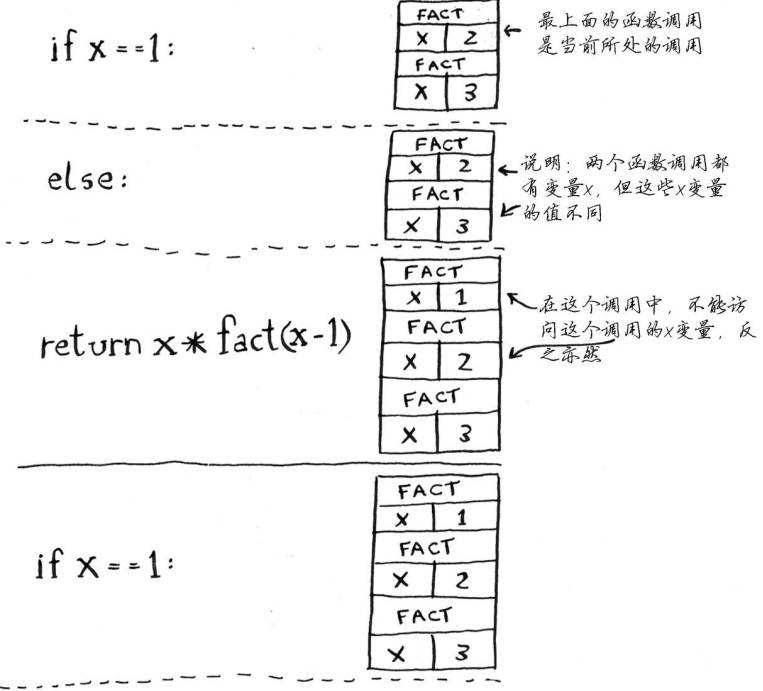 if x==1:
FACT
X 2
FACT
X 3
最上面的函数调用
是当前所处的调用
else:
FACT
X 2
FACT
X 3
说明：两个函数调用都
有变量x，但这些x变量
的值不同
return x*fact(x-1)
FACT
X 1
FACT
X 2
FACT
X 3
在这个调用中，不能访
问这个调用的x变量，反
之亦然
if x==1:
FACT
X 1
FACT
X 2
FACT
X 3